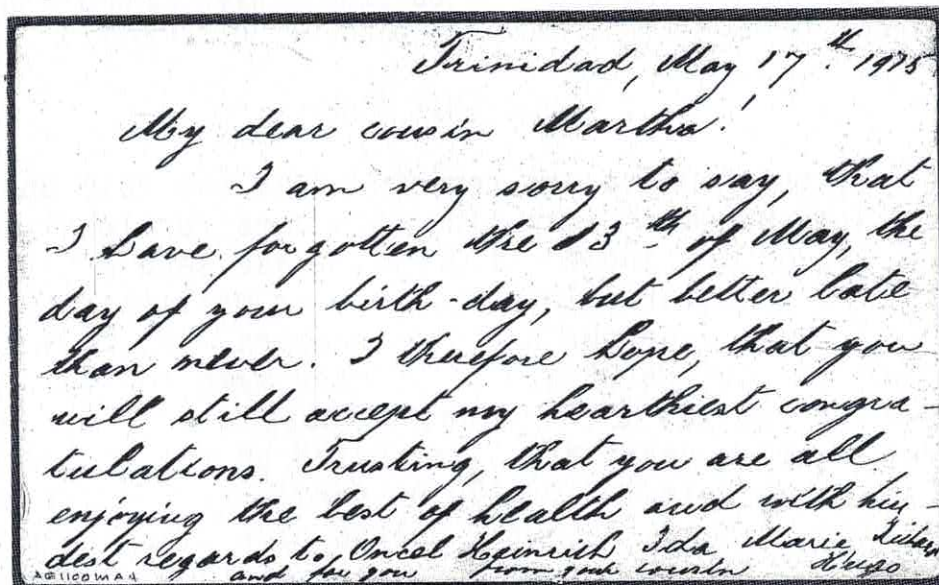 Trinidad, May 17th. 1915
My dear cousin Martha!
I am very sorry to say, that
I have forgotten the 13th of May, the
day of your birth-day, but better late
than never. I therefore hope, that you
will still accept my hearthiest congra-
tulations. Trusting, that you are all
enjoying the best of health and with kin-
dest regards to Oncel Heinrich Ida Marie
and for you from your cousin Hugo